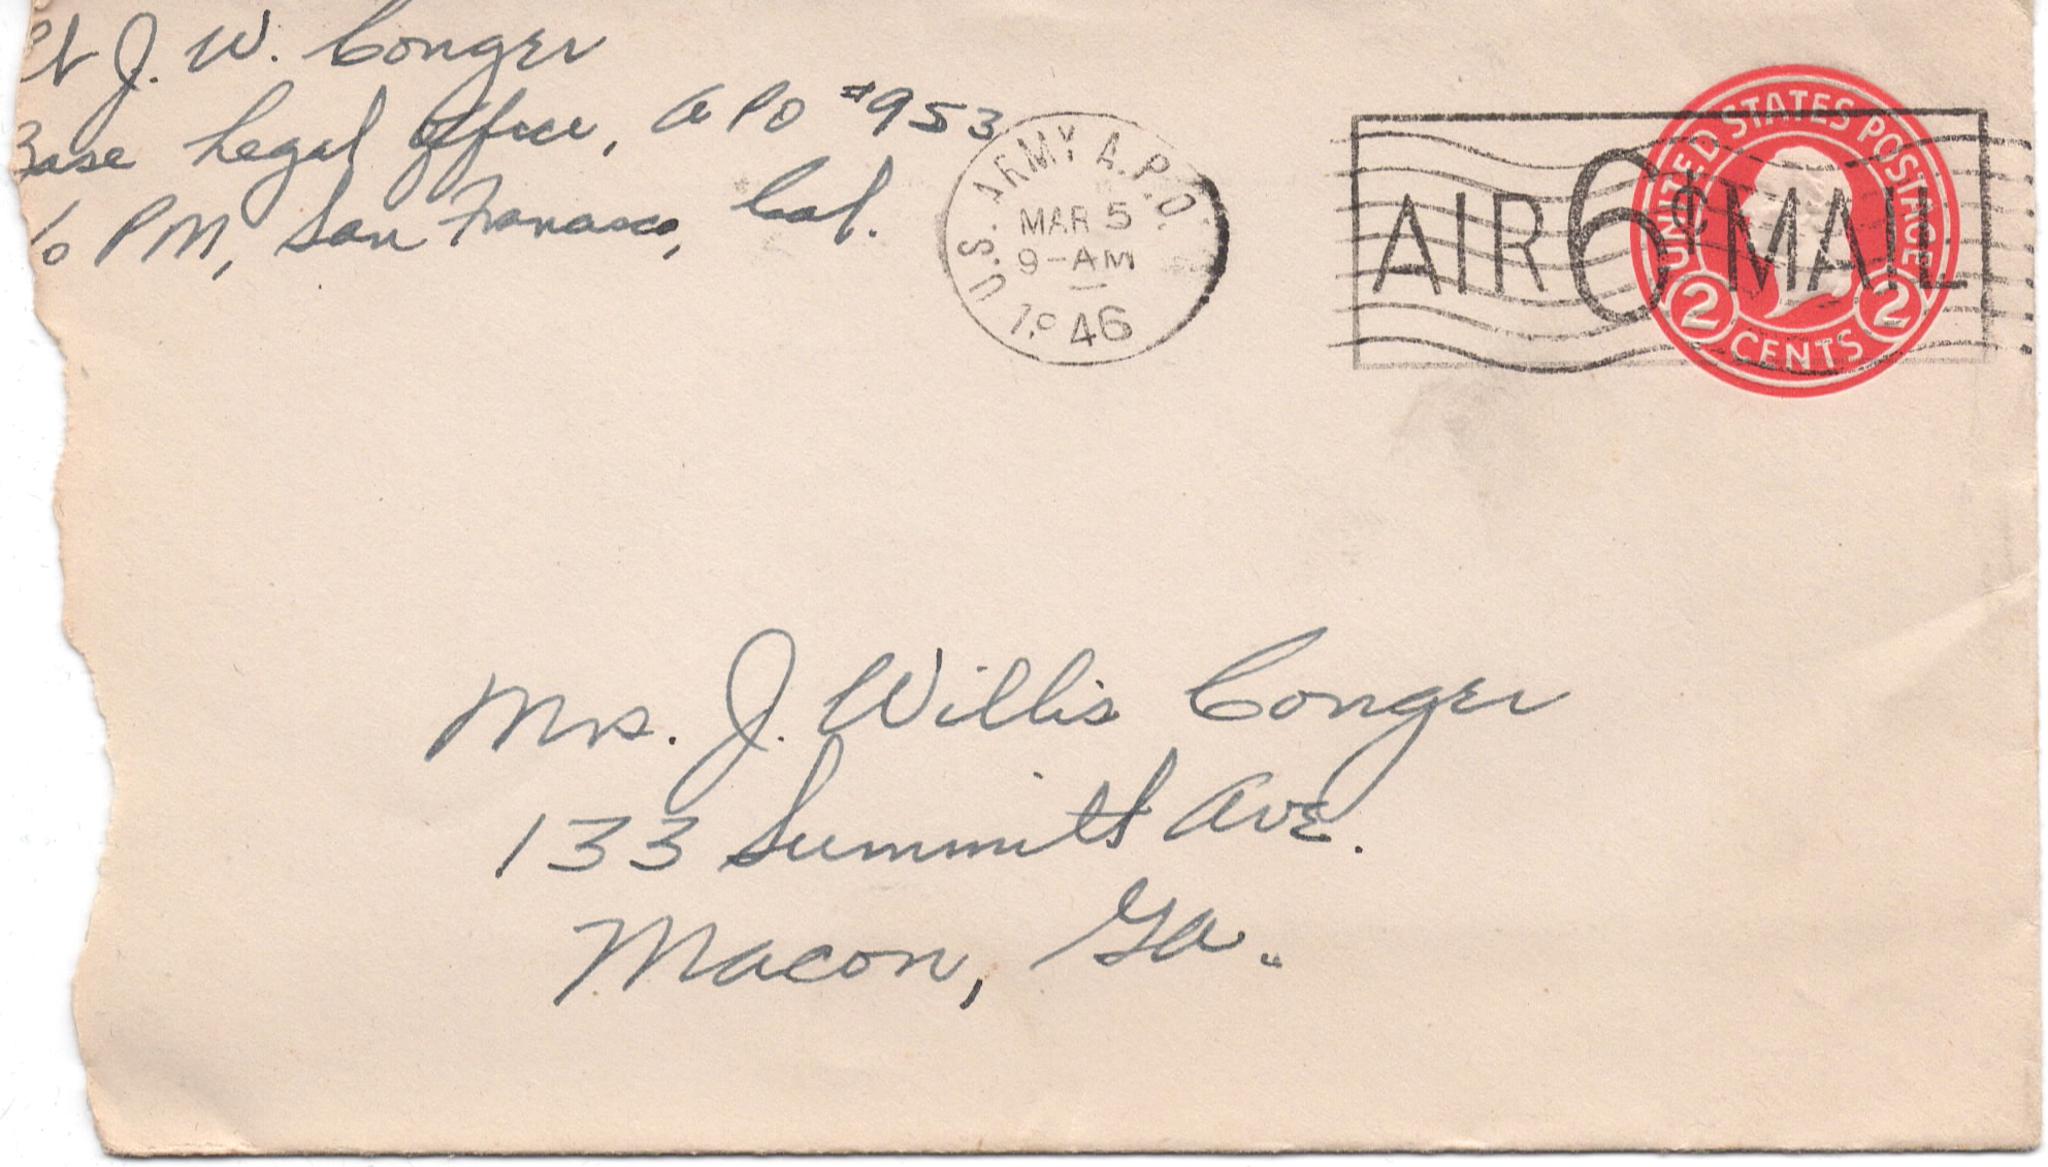 Lt J. W. Conger
Base Legal Office, APO #953
c/o PM, San Francisco, Cal.
U.S. ARMY A.P.O.
MAR 5
9-AM
46
AIR 6¢ MAIL
UNITED STATES POSTAGE
2 CENTS 2
Mrs. J. Willis Conger
133 Summitt Ave.
Macon, Ga.